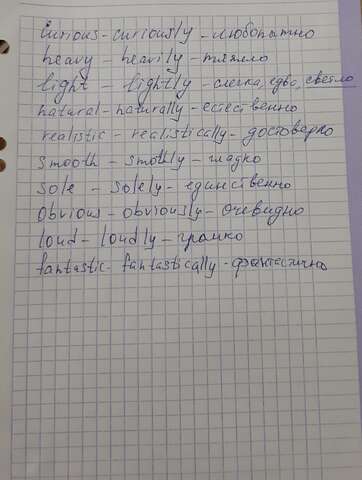 curious - curiously - любопытно
heavy - heavily - тяжело
light - lightly - слегка, едва, светло
natural - naturally - естественно
realistic - realistically - достоверно
smooth - smothly - гладко
sole - solely - единственно
obvious - obviously - очевидно
loud - loudly - громко
fantastic - fantastically - фантастично